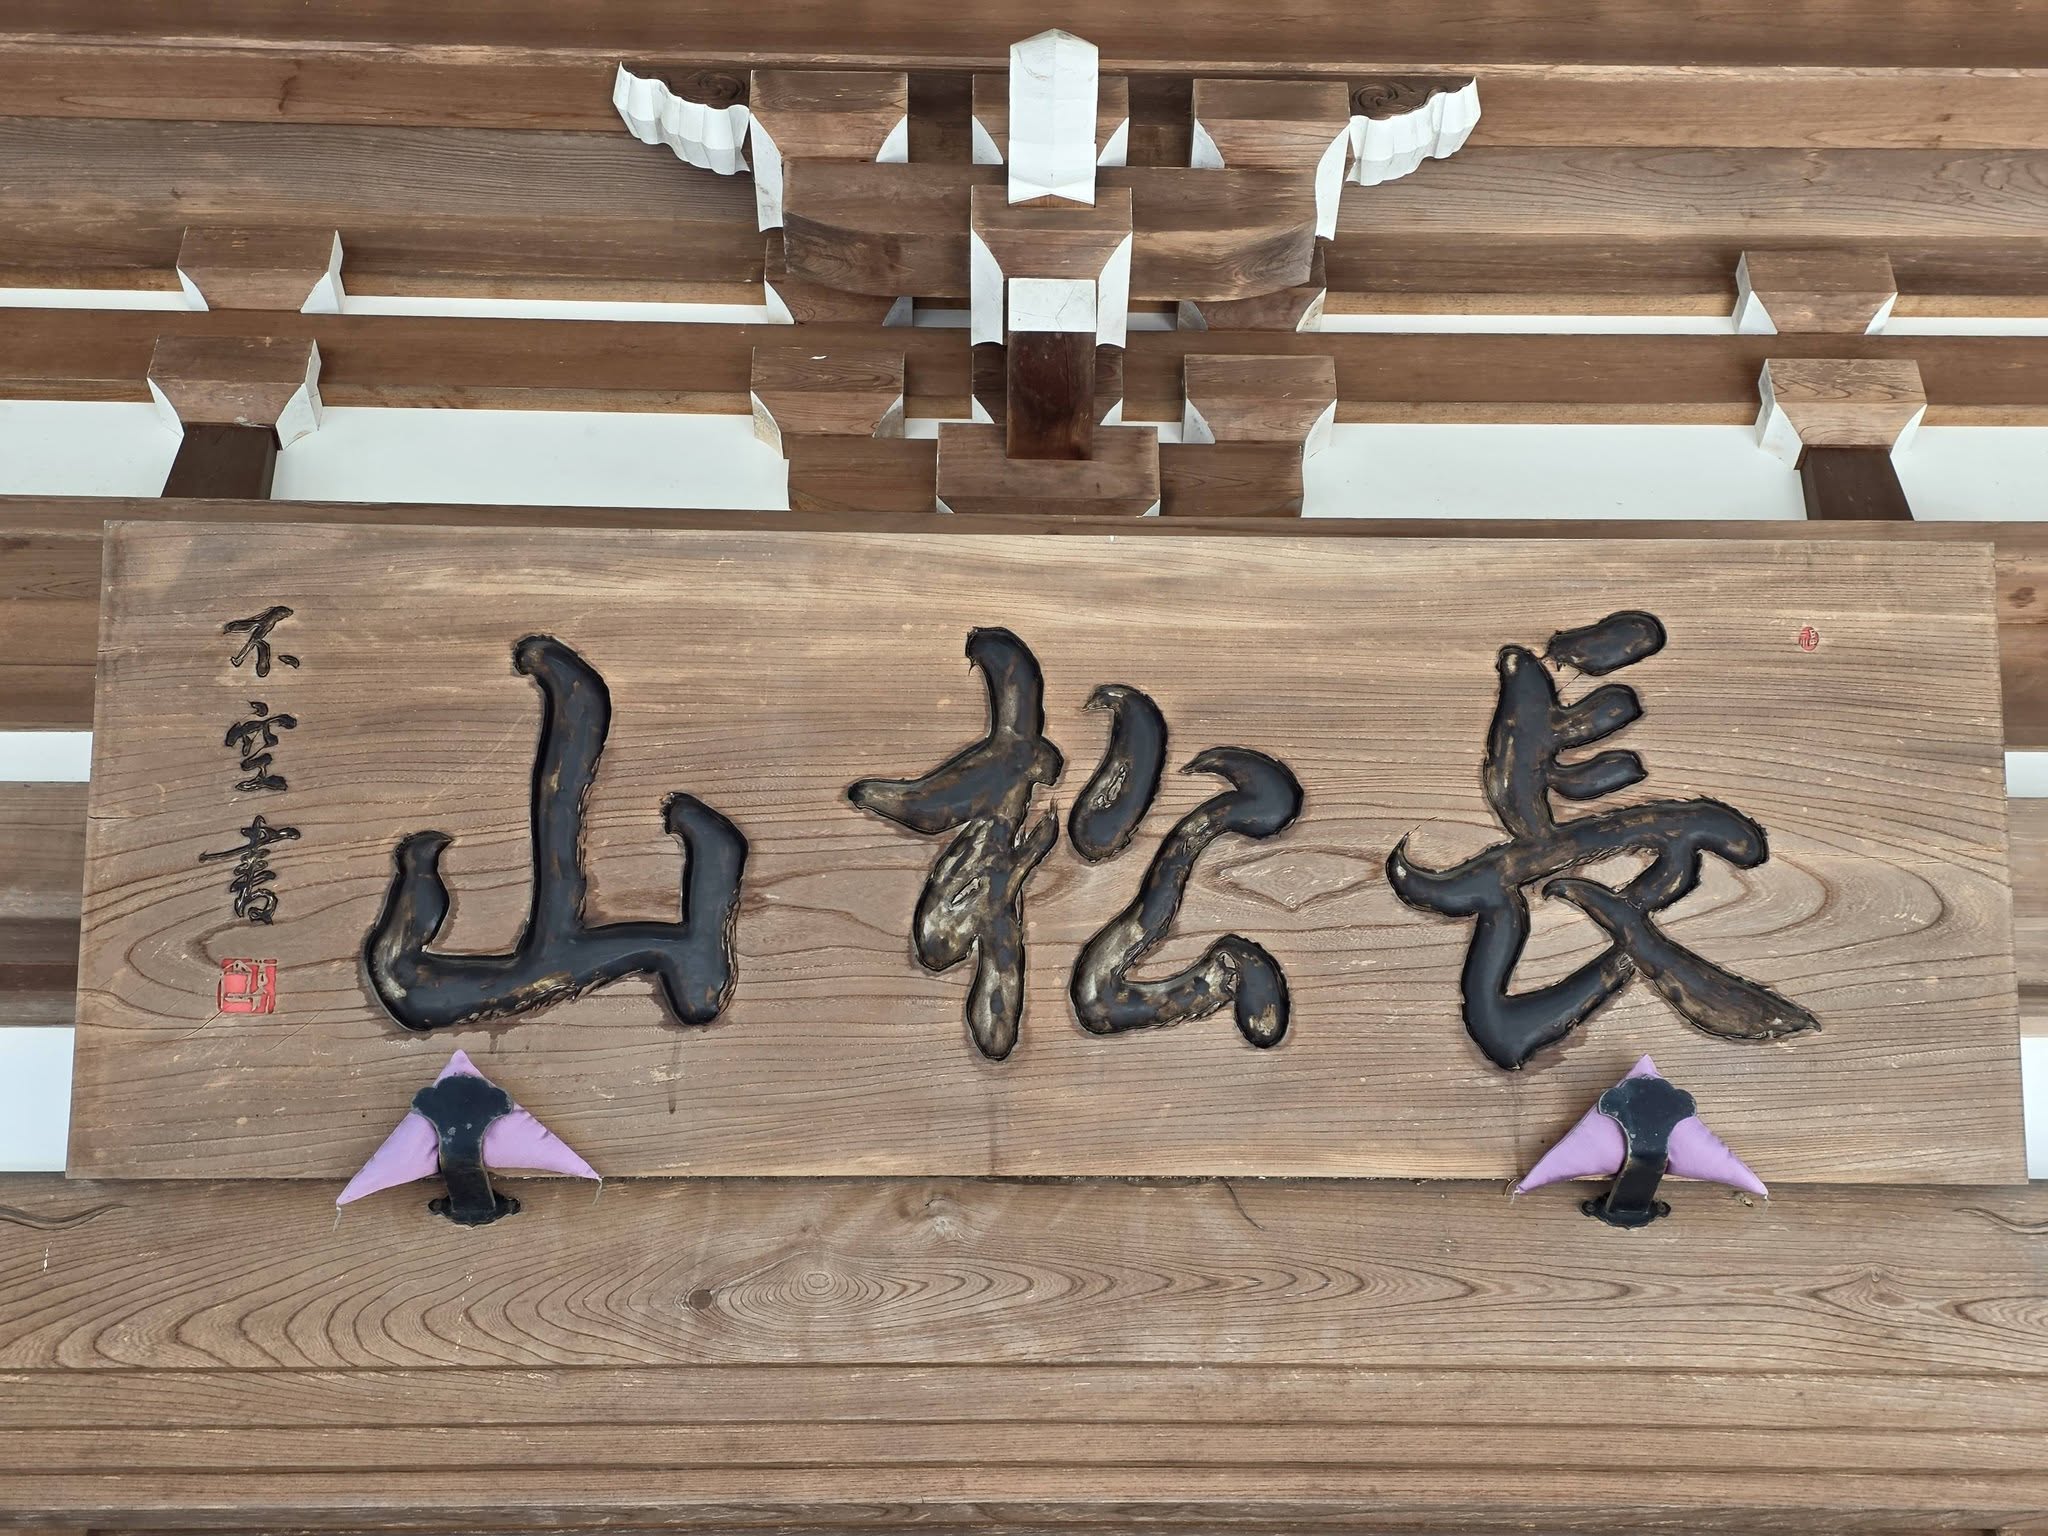 長松山
不空書